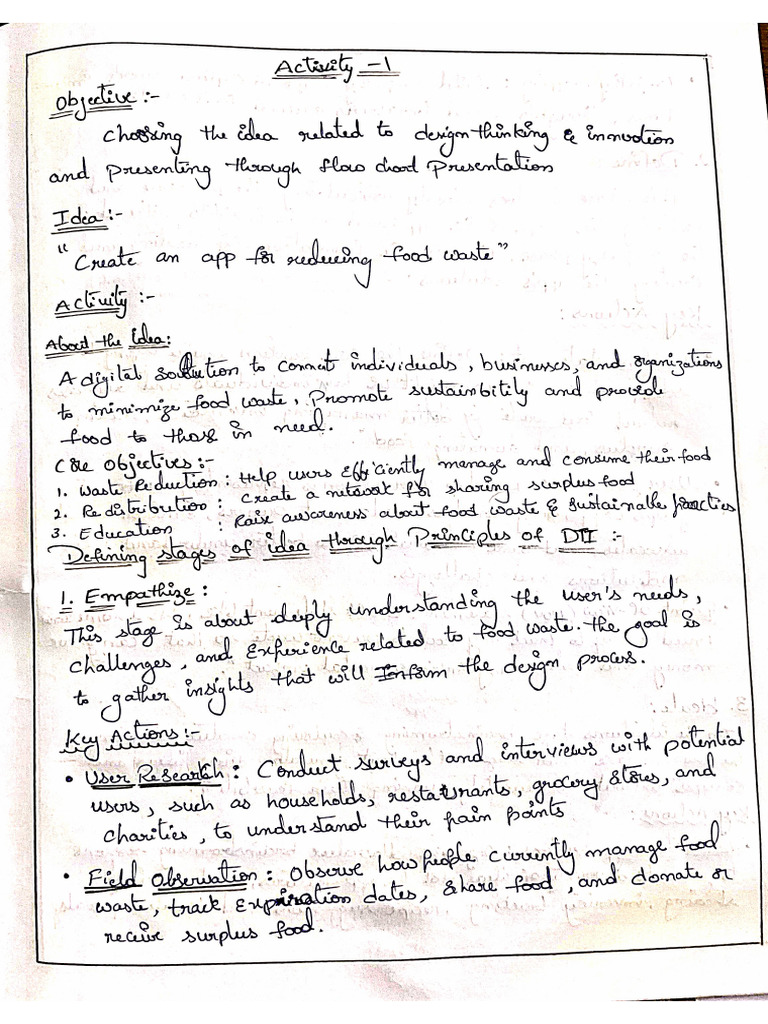 Activity -1
Objective :-
Choosing the idea related to design thinking & innovation
and presenting through flow chart Presentation
Idea :-
"Create an app for reducing food waste"
Activity :-
About the idea:
A digital solution to connect individuals, businesses, and organizations
to minimize food waste, Promote sustainbitily and provide
food to those in need.
Core Objectives :-
1. Waste Reduction : Help users Efficiently manage and consume their food
2. Redistribution : Create a network for sharing surplus food
3. Education : Raise awareness about food waste & Sustainable practices
Defining stages of idea through Principles of DTI :-
1. Empathize :
This stage is about deeply understanding the user's needs,
challenges, and Experience related to food waste. the goal is
to gather insights that will Inform the design process.
Key Actions :-
• User Research : Conduct surveys and interviews with potential
users, such as households, restaurants, grocery stores, and
charities, to understand their pain points
• Field Observation : Observe how people currently manage food
waste, track Expiration dates, share food, and donate or
receive surplus food.